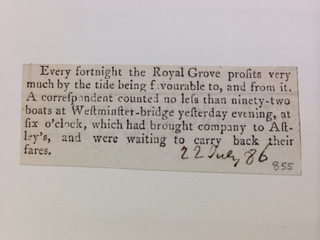 Every fortnight the Royal Grove profits very
much by the tide being favourable to, and from it.
A correſpondent counted no leſs than ninety-two
boats at Weſtminſter-bridge yeſterday evening, at
ſix o'clock, which had brought company to Aſt-
ley's, and were waiting to carry back their
fares.
22 July 86
855